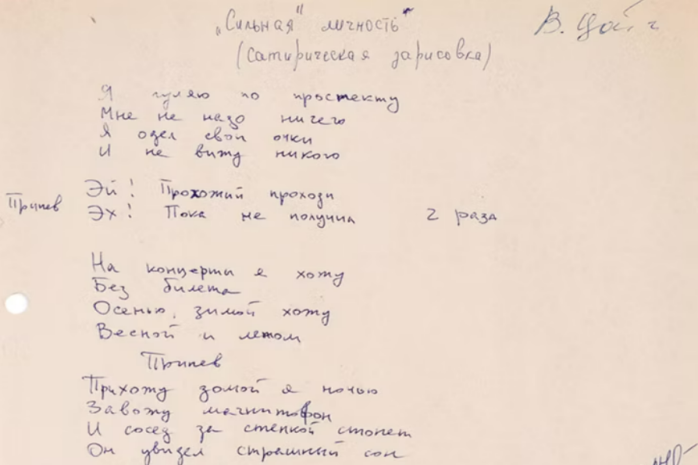 „Сильная" личность
В. Цой
(сатирическая зарисовка)
Я гуляю по проспекту
Мне не надо ничего
Я одел свои очки
И не вижу никого
Эй! Прохожий проходи
Припев Эх! Пока не получил 2 раза
На концерты я хожу
Без билета
Осенью, зимой хожу
Весной и летом
Припев
Прихожу домой я ночью
Завожу магнитофон
И сосед за стенкой стонет
Он увидел страшный сон